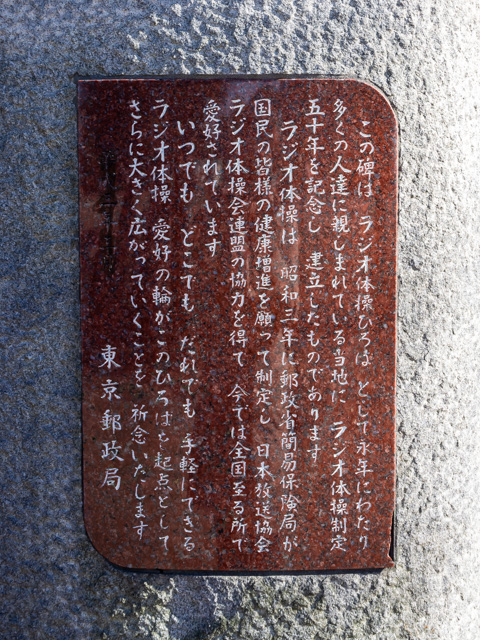 この碑は ラジオ体操ひろば として永年にわたり
多くの人達に親しまれている当地に ラジオ体操制定
五十年を記念し 建立したものであります
ラジオ体操は 昭和三年に郵政省簡易保険局が
国民の皆様の健康増進を願って制定し 日本放送協会
ラジオ体操会連盟の協力を得て 今では全国至る所で
愛好されています
いつでも どこでも だれでも 手軽にできる
ラジオ体操 愛好の輪がこのひろばを起点として
さらに大きく広がっていくことを 祈念いたします
東京郵政局